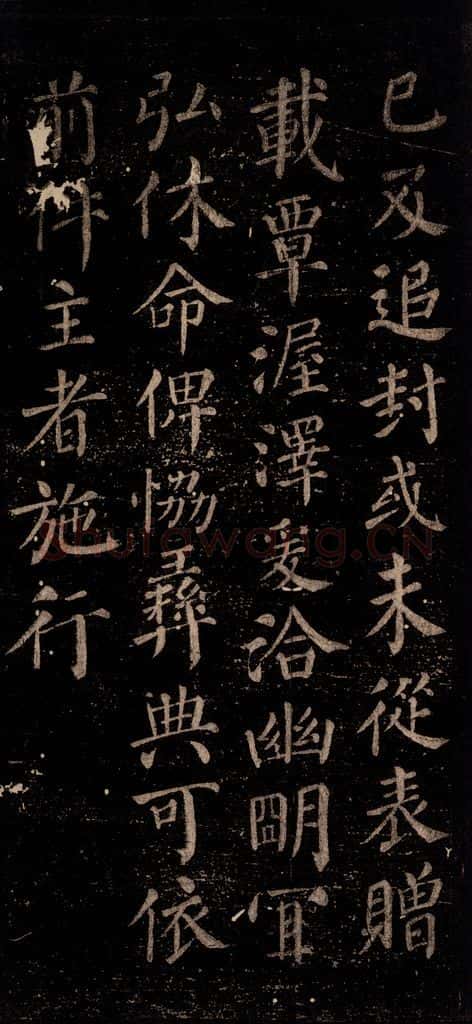 已及追封或未從表贈
載覃渥澤爰洽幽朙冝
弘休命俾恊彝典可依
前件主者施行
shufawang.CN